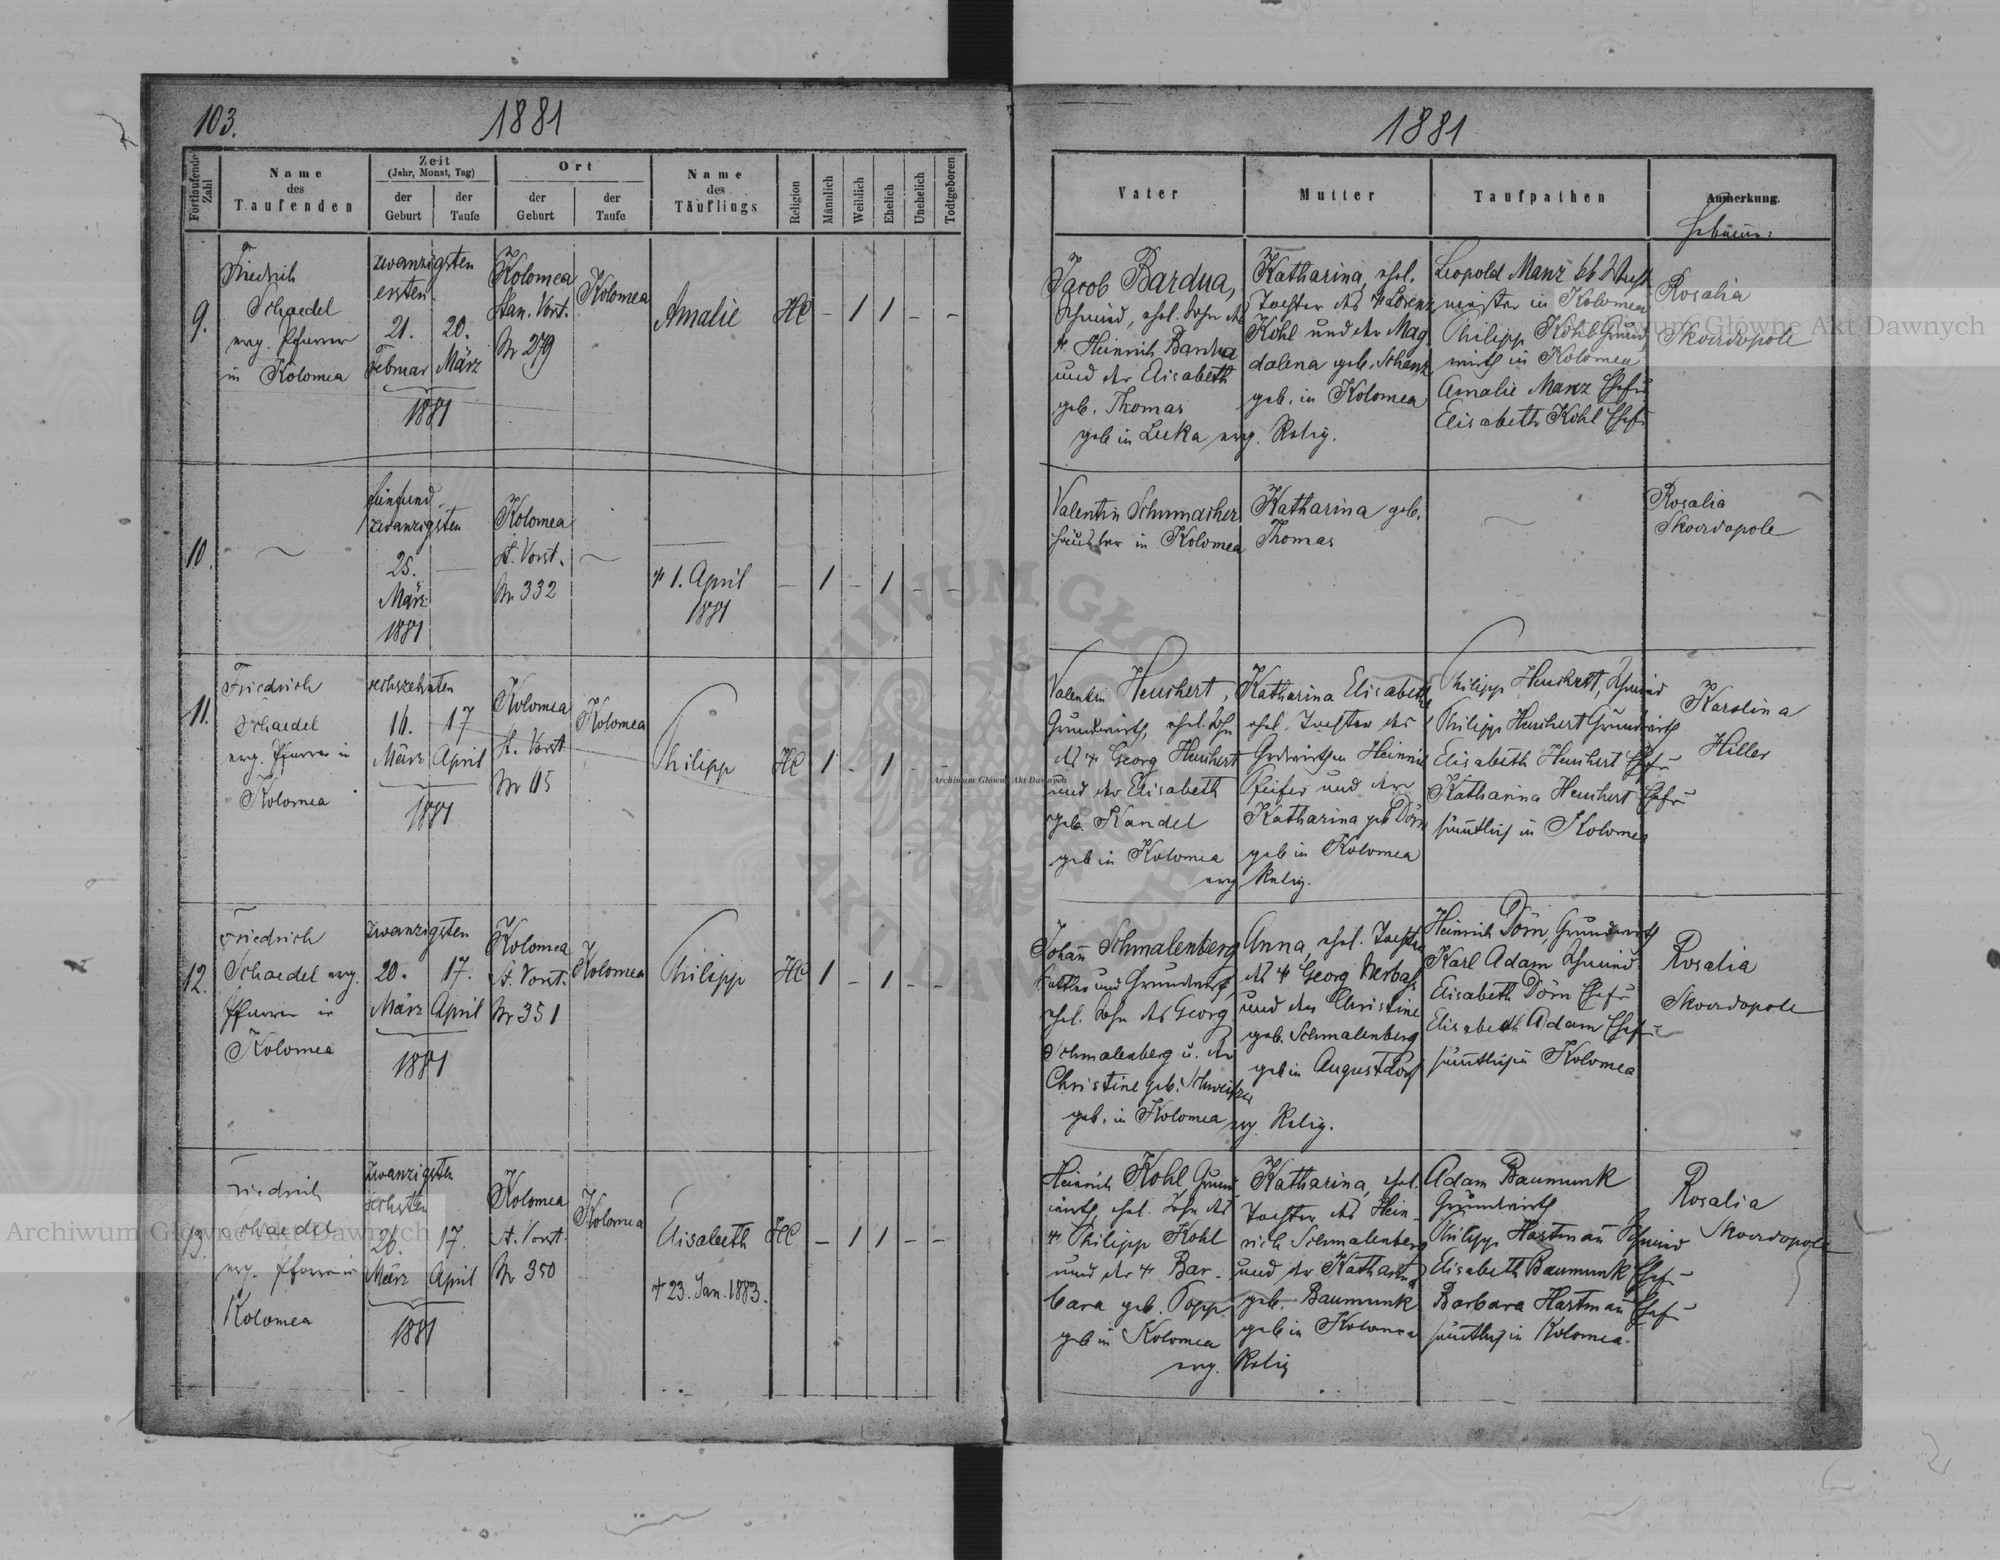 103.
1881
Fortlaufende Zahl
Name des Taufenden
Zeit
(Jahr, Monat, Tag)
der Geburt
der Taufe
Ort
der Geburt
der Taufe
Name des Täuflings
Religion
Männlich
Weiblich
Ehelich
Unehelich
Todtgeboren
9.
Friedrich
Schaedel
evg. Pfarrer
in Kolomea
zwanzigsten
ersten
21.
Februar
20.
März
1881
Kolomea
Stan. Vorst.
Nr 279
Kolomea
Amalie
HC
–
1
1
–
–
10.
fünfund
zwanzigsten
25.
März
1881
Kolomea
St. Vorst.
Nr 332
1. April
1881
–
1
–
1
–
–
11.
Friedrich
Schaedel
evg. Pfarrer in
Kolomea
sechszehnten
16.
März
17
April
1881
Kolomea
St. Vorst
Nr
Kolomea
Philipp
HC
1
–
1
–
–
12.
Friedrich
Schaedel evg.
Pfarrer in
Kolomea
zwanzigsten
20.
März
17.
April
1881
Kolomea
St. Vorst.
Nr 351
Kolomea
Philipp
HC
1
–
1
–
–
13.
Friedrich
Schaedel
evg. Pfarrer in
Kolomea
zwanzigsten
sechsten
26.
März
17.
April
1881
Kolomea
St. Vorst.
Nr 350
Kolomea
Elisabeth
† 23. Jan. 1883.
HC
–
1
1
–
–
1881
Vater
Mutter
Taufpathen
Anmerkung.
Jacob Bardua,
Schmied, ehel. Sohn des
† Heinrich Bardua
und der Elisabeth
geb. Thomas
geb in Luka evg. Relig.
Katharina, ehel.
Tochter des † Lorenz
Kohl und der Mag
dalena geb. Schanz
geb. in Kolomea
Leopold Manz
meister in Kolomea
Philipp Kohl Grund
wirth in Kolomea
Amalie Manz Ehefr
Elisabeth Kohl Ehefr
Rosalia
Skovrdopole
Valentin Schumacher
Häusler in Kolomea
Katharina geb.
Thomas
Rosalia
Skovrdopole
Valentin Heuchert,
Grundwirth, ehel. Sohn
des † Georg Heuchert
und der Elisabeth
geb. Kandel
geb in Kolomea
evg Relig.
Katharina Elisabeth
ehel. Tochter des
Heinrich
Pfeifer und der
Katharina geb Dörn
geb in Kolomea
Philipp Heuchert, Schmied
Philipp Heuchert Grundwirth
Elisabeth Heuchert Ehefr
Katharina Heuchert Ehefr
sämtlich in Kolomea
Karolina
Hiller
Johann Schmalenberg
und Grundwirth,
ehel. Sohn des Georg
Schmalenberg u. der
Christine geb. Schweitzer
geb. in Kolomea evg. Relig.
Anna, ehel. Tochter
des † Georg
und der Christine
geb. Schmalenberg
geb in Augustdorf
Heinrich Dörn, Grundwirth
Karl Adam Schmied
Elisabeth Dörn Ehefr
Elisabeth Adam Ehefr
sämtlich in Kolomea
Rosalia
Skovrdopole
Heinrich Kohl Grund
wirth, ehel. Sohn des
† Philipp Kohl
und der † Bar-
bara geb. Popp
geb in Kolomea
evg. Relig
Katharina, ehel.
Tochter des Hein-
rich Schmalenberg
und der Katharina
geb. Baumunk
geb in Kolomea
Adam Baumunk
Grundwirth
Philipp Hartman Schmied
Elisabeth Baumunk Ehefr
Barbara Hartman Ehefr
sämtlich in Kolomea.
Rosalia
Skovrdopole
Archiwum Główne Akt Dawnych
Archiwum Główne Akt Dawnych
Archiwum Główne Akt Dawnych